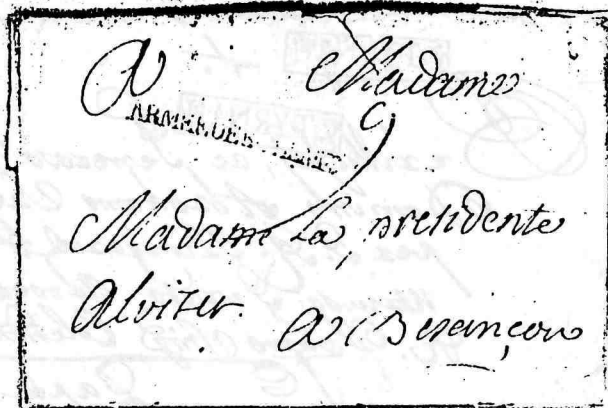 A Madame
ARMEE
9
Madame La presidente
Alviset. a Besançon